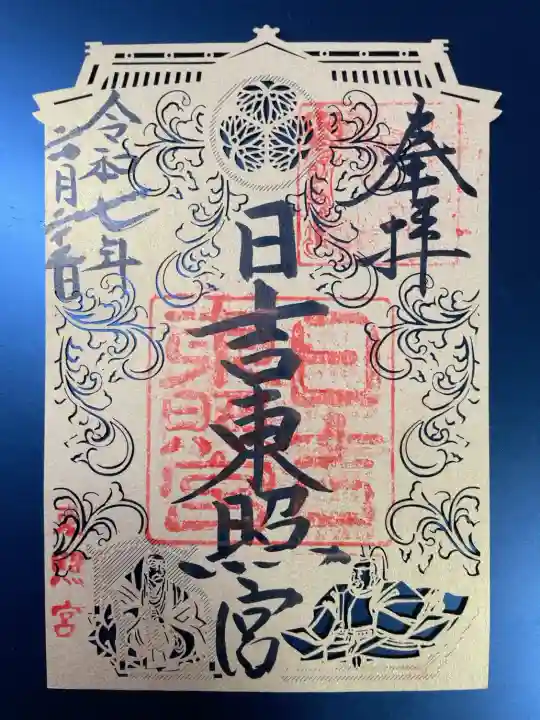 奉拝
日吉東照宮
令和七年
六月六日
日吉東照宮
東照宮